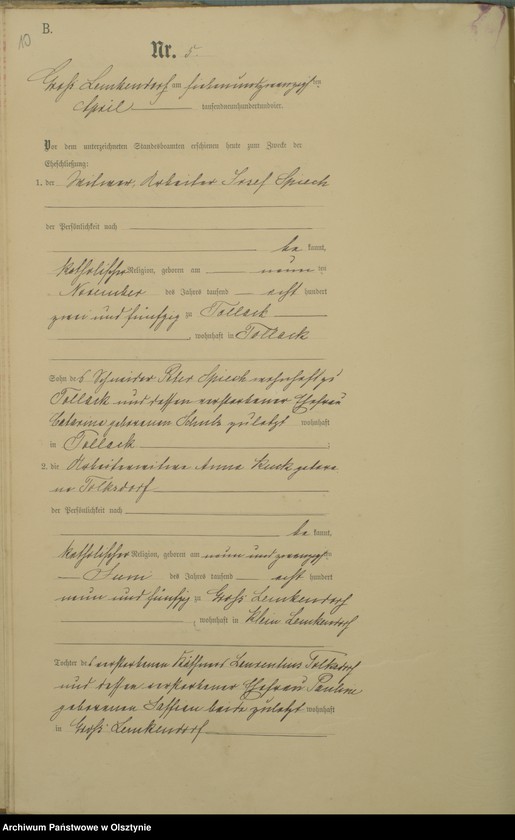 10
B.
Nr. 5.
Groß Lemkendorf am siebenundzwanzigsten
April tausendneunhundertundvier.
Vor dem unterzeichneten Standesbeamten erschienen heute zum Zwecke der
Eheschließung:
1. der Witwer, Arbeiter Josef Spiech
der Persönlichkeit nach
be kannt,
katholischer Religion, geboren am neun ten
November des Jahres tausend acht hundert
zwei und fünfzig zu Tollack
, wohnhaft in Tollack
Sohn des Schneider Peter Spiech wohnhaft zu
Tollack und dessen verstorbener Ehefrau
geborenen Schulz zuletzt wohnhaft
in Tollack ;
2. die Arbeiterwitwe Anna Kuck gebore
ne Tolksdorf
der Persönlichkeit nach
be kannt,
katholischer Religion, geboren am neun und zwanzigsten
Juni des Jahres tausend acht hundert
neun und fünfzig zu Groß Lemkendorf
, wohnhaft in Klein Lemkendorf
Tochter des verstorbenen Käthners Tolksdorf
und dessen verstorbener Ehefrau Pauline
geborenen beide zuletzt wohnhaft
in Groß Lemkendorf
Archiwum Państwowe w Olsztynie